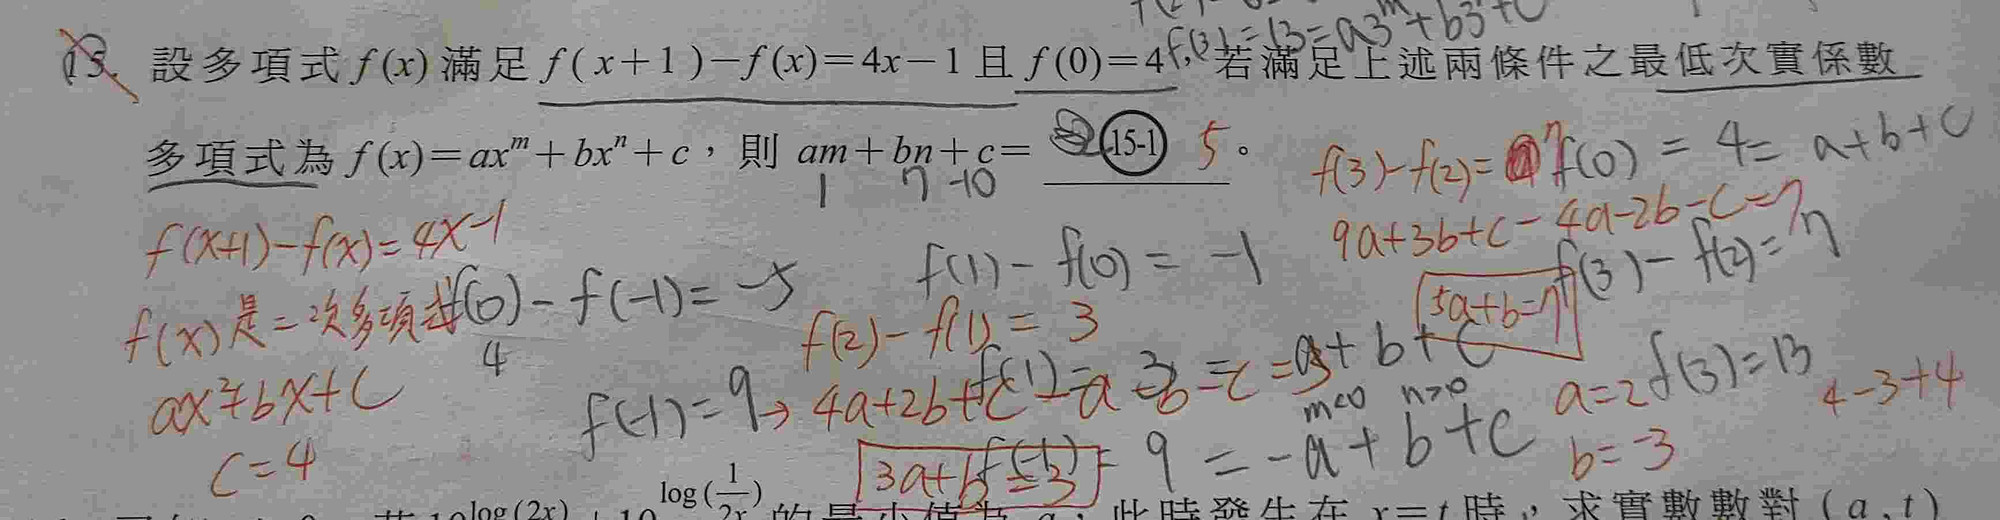 f(3)=13=a3^m+b3^n+c
13. 設多項式 f(x) 滿足 f(x+1)−f(x)=4x−1 且 f(0)=4，若滿足上述兩條件之最低次實係數
多項式為 f(x)=ax^m+bx^n+c，則 am+bn+c= (15-1) 5。
1 7 -10
f(3)-f(2)=7
f(0) = 4 = a+b+c
f(x+1)-f(x)=4x-1
9a+3b+c-4a-2b-c=7
f(1)-f(0)=-1
f(3)-f(2)=7
f(x)是二次多項式
f(0)-f(-1)=-5
4
f(2)-f(1)=3
5a+b=7
ax²+bx+c
f(-1)=9
4a+2b+c-a-b-c=3
m<0 n>0
a=2
f(3)=13
4-3+4
c=4
3a+b=3
f(-1)=9=-a+b+c
b=-3
log(2x) log(1/2x) 此時發生在 x=t 時，求實數數對 (a,t)